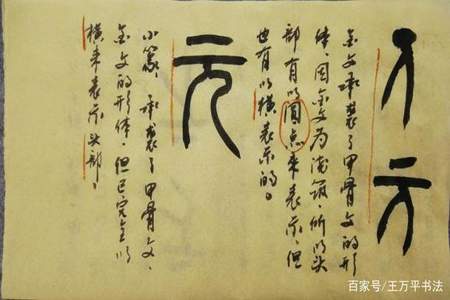 金文承袭了甲骨文的形
体,因金文为浇铸,所以头
部有以圆点来表示,但
也有以横表示的。
元
小篆,承袭了甲骨文、
金文的形体,但已完全以
横来表示头部。
百家号/王万平书法